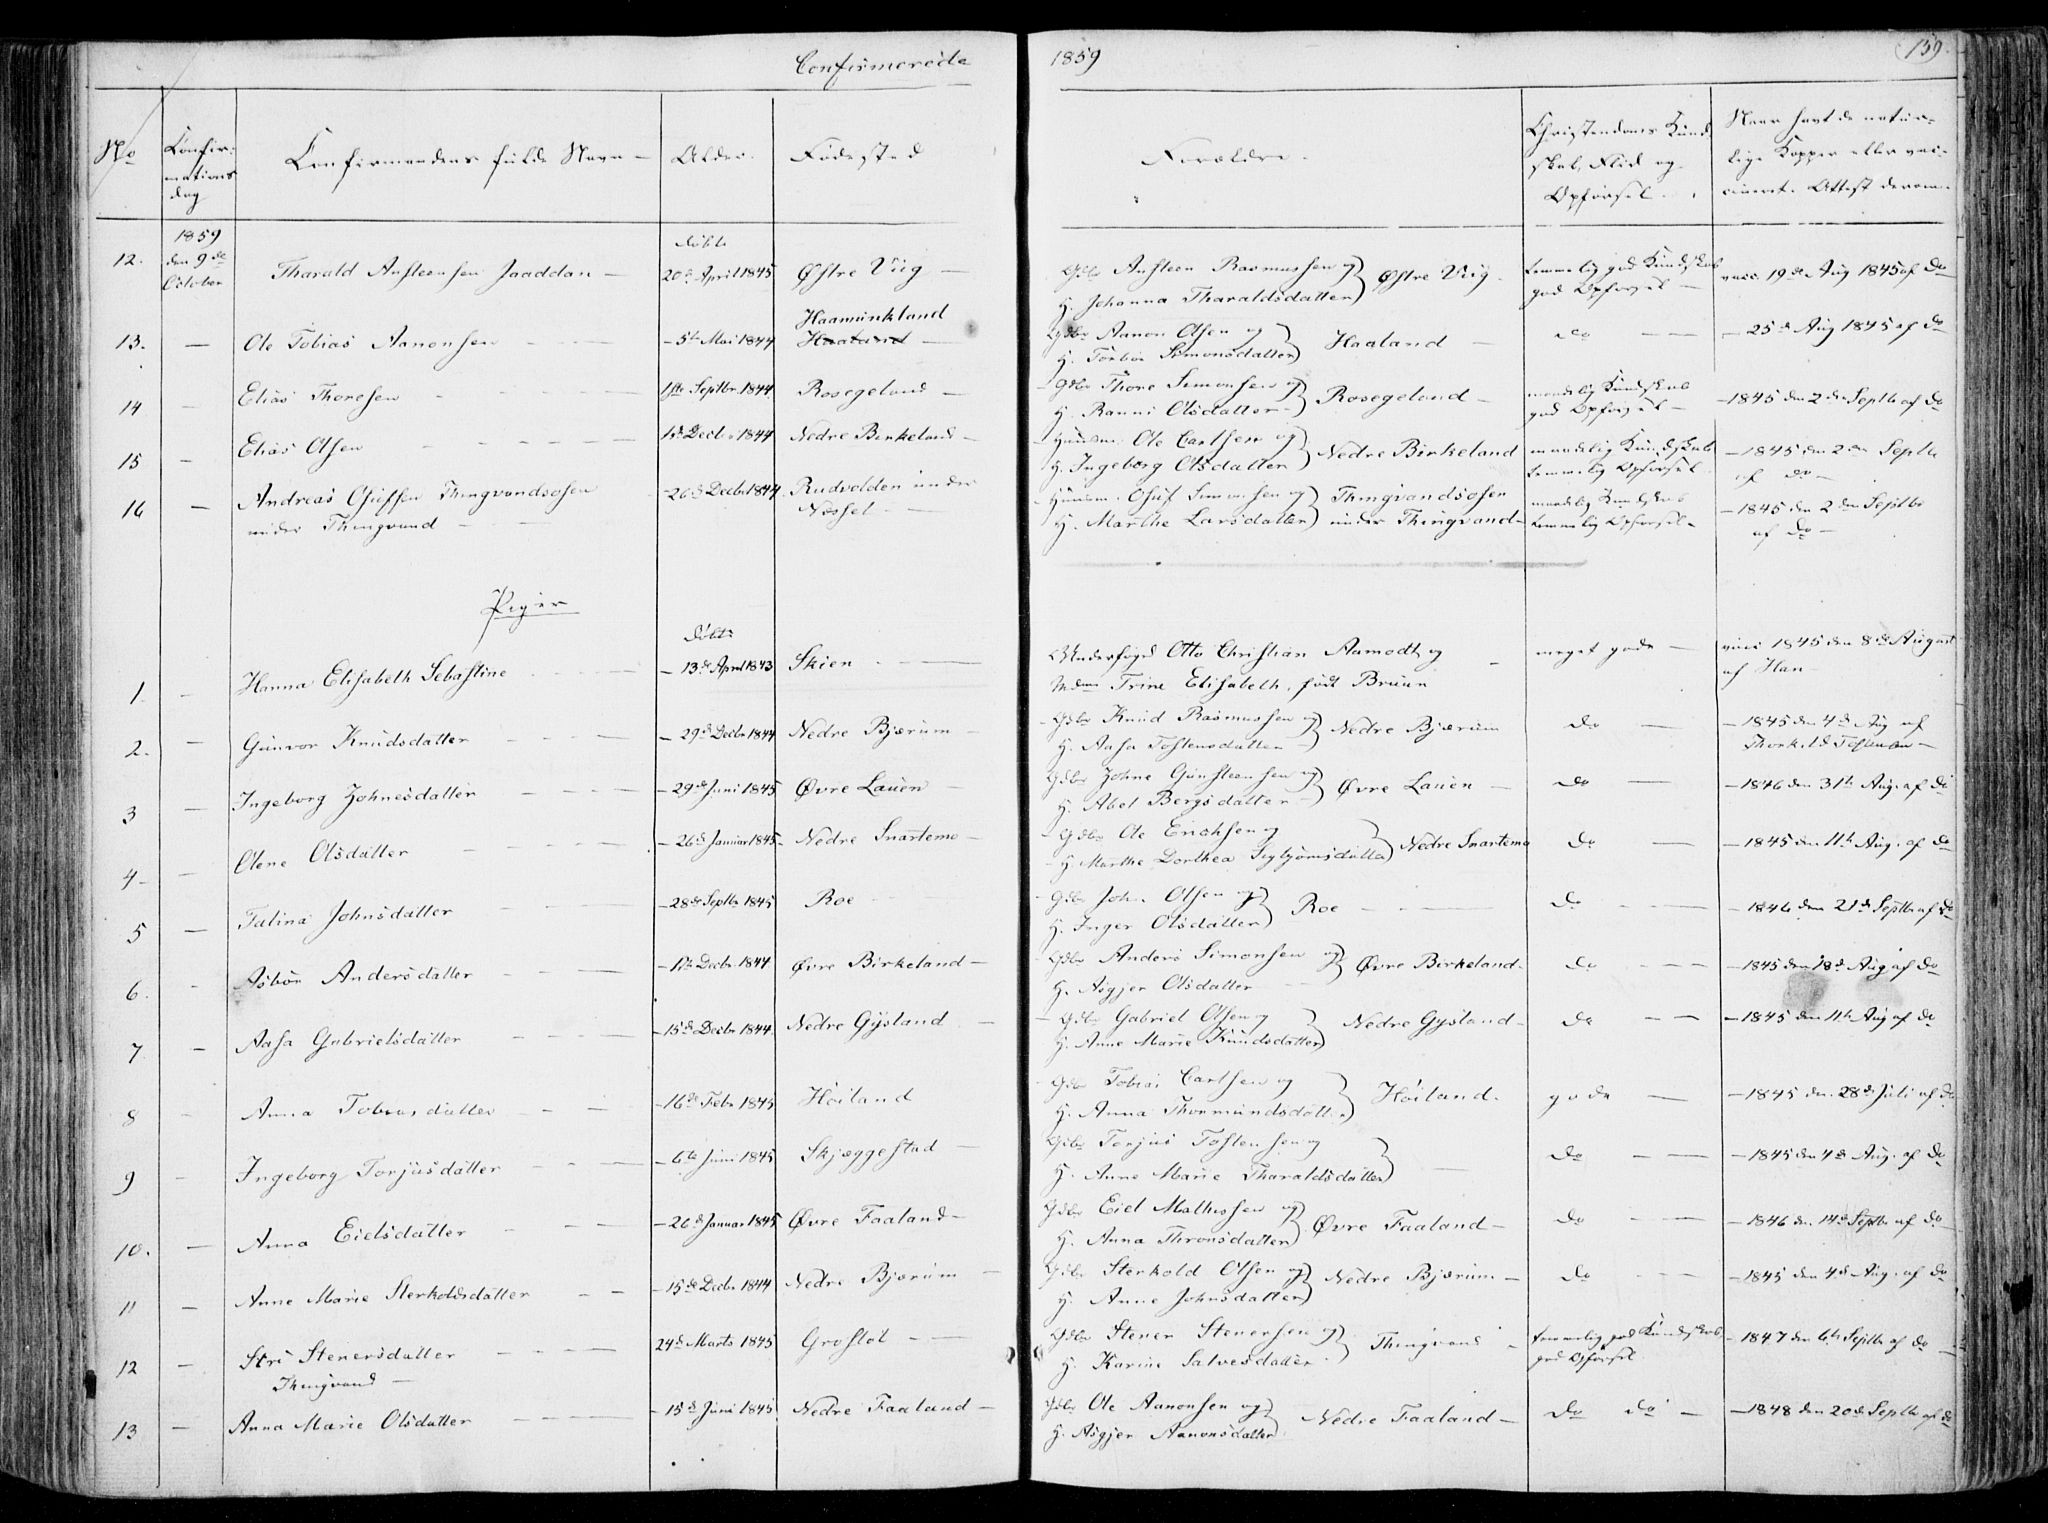 Confirmerede
1859
159.
No
Confirmations dag
Confirmandens fulde Navn
Alder.
Fødested
Forældre.
Christendoms Kundskab, Flid og Opførsel.
Naar havt de naturlige Kopper eller vaccineret. Attest derom.
12. 1859 den 9de October Tharald Ansteensen Jaaddan døbt 20de April 1845 Østre Viig Gdbr Ansteen Rasmussen og H. Johanna Tharaldsdatter Østre Viig temmelig god Kundskab god Opførsel vacc. 19de Aug 1845 af do
13. Ole Tobias Aanonsen 5te Mai 1844 Haaland Haamunkland Gdbr Aanon Olsen og H. Torbor Simonsdatter Haaland do 25de Aug 1845 af do
14 Elias Thoresen 1ste Septbr 1844 Rosegeland Gdbr Thore Simonsen og H. Ranni Olsdatter Rosegeland maadelig Kundskab god Opførsel 1845 den 2den Septb af do
15 Elias Olsen Decbr 1844 Nedre Birkeland Huusm. Ole Carlsen og H. Ingeborg Olsdatter Nedre Birkeland maadelig Kundskab temmelig Opførsel 1845 den 2den Septb af do
16 Andreas Osufsen Thingvandsosen under Thingvand 26de Decbr 1844 Rudvolden under Nossel Huusm. Osuf Simonsen og H. Marthe Larsdatter Thingvandsosen under Thingvand maadelig Kundskab temmelig Opførsel 1845 den 2den Septbr af do
Piger
1. Hanna Elisabeth Sebastine døbt 13de April 1843 Skien Underfoged Otto Christian Aamodt og Mdme Trine Elisabeth, født Bruun meget gode vacc 1845 den 8de August af Han
2. Gunvor Knudsdatter 29de Decbr 1844 Nedre Bjærum Gdbr Knud Rasmussen og H. Aasa Tostensdatter Nedre Bjærum do 1845 den 4de Aug af Thorkild Tostensen
3 Ingeborg Johnesdatter 29de Juni 1845 Øvre Lauen Gdbr Johne Gunsteensen og H. Abel Bergsdatter Øvre Lauen do 1846 den 31te Aug. af do
4 Olene Olsdatter 26de Januar 1845 Nedre Snartemo Gdbr Ole Erichsen og H. Marthe Dorthea Sigbjørnsdatter Nedre Snartemo do 1845 den 11te Aug. af do
5 Talina Johnsdatter 28de Septbr 1845 Roe Gdbr John Olsen og H. Inger Olsdatter Roe do 1846 den 21de Septb af do
6. Asbor Andersdatter Decbr 1844 Øvre Birkeland Gdbr Anders Simonsen og H. Asgjer Olsdatter Øvre Birkeland do 1845 den 18de Aug af do
7 Aasa Gabrielsdatter 15de Decbr 1844 Nedre Gysland Gdbr Gabriel Olsen og H. Anne Marie Knudsdatter Nedre Gysland do 1845 den 11te Aug af do
8 Anna Tobiasdatter 16de Febr 1845 Høiland Gdbr Tobias Carlsen og H. Anna Thormundsdatter Høiland gode 1845 den 28de Juli af do
9 Ingeborg Torjusdatter 6te Juni 1845 Skjæggestad Gdbr Torjus Tostensen og H. Anne Marie Tharaldsdatter do 1845 den 4de Aug. af do
10. Anna Eielsdatter 26de Januar 1845 Øvre Faaland Gdbr Eiel Mathissen og H. Anna Thronsdatter Øvre Faaland do 1846 den 14de Septbr af do
11 Anne Marie Sterkoldsdatter 15de Decbr 1844 Nedre Bjærum Gdbr Sterkold Olsen og H. Anne Johnsdatter Nedre Bjærum do 1845 den 4de Aug. af do
12 Siri Stenersdatter Thingvand 24de Marts 1845 Grostøl Gdbr Stener Stenersen og H. Karine Salvesdatter Thingvand temmelig god Kundskab god Opførsel 1847 den 6te Septbr af do
13 Anna Marie Olsdatter 15de Juni 1845 Nedre Faaland Gdbr Ole Aanonsen og H. Asgjer Aanonsdatter Nedre Faaland do do 1848 den 20de Septb af do